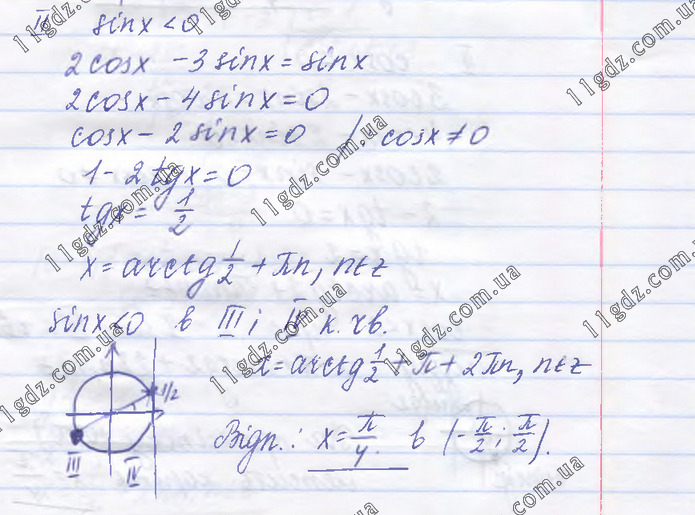 II sinx < 0
2cosx - 3sinx = sinx
2cosx - 4sinx = 0
cosx - 2sinx = 0 /: cosx ≠ 0
1 - 2tgx = 0
tgx = 1/2
x = arctg 1/2 + πn, n∈z
sinx < 0 в III і IV к. чв.
x = arctg 1/2 + π + 2πn, n∈z
1/2
III
IV
Відп.: x = π/4 в (-π/2; π/2).
11gdz.com.ua
11gdz.com.ua
11gdz.com.ua
11gdz.com.ua
11gdz.com.ua
11gdz.com.ua
11gdz.com.ua
11gdz.com.ua